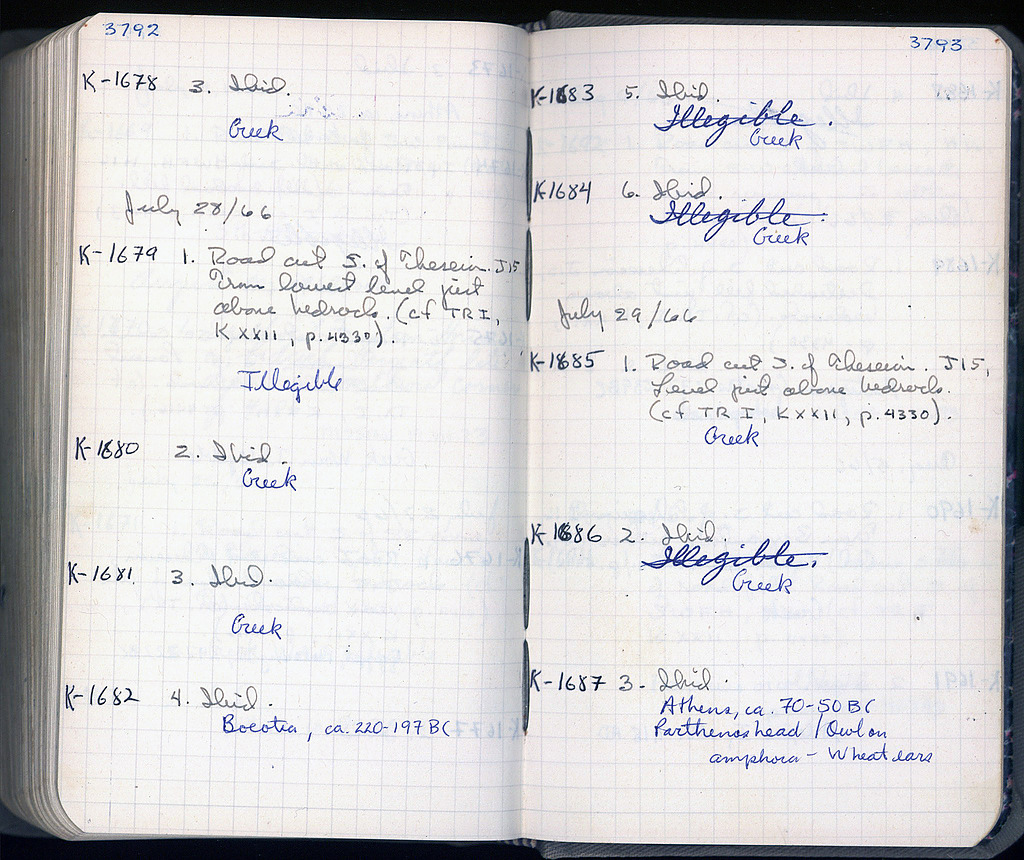 3792
K-1678 3. Ibid.
Greek
July 28/66
K-1679 1. Road cut S. of Theseion. J15
From lowest level just
above bedrock. (cf TR I,
K XXII, p. 4330).
Illegible
K-1680 2. Ibid.
Greek
K-1681 3. Ibid.
Greek
K-1682 4. Ibid.
Boeotia, ca. 220-197 BC
3793
K-1683 5. Ibid.
Illegible.
Greek
K-1684 6. Ibid.
Illegible.
Greek
July 29/66
K-1685 1. Road cut S. of Theseion. J15,
Level just above bedrock.
(cf TR I, K XXII, p. 4330).
Greek
K-1686 2. Ibid.
Illegible.
Greek
K-1687 3. Ibid.
Athens, ca. 70-50 BC
Parthenos head / Owl on
amphora - Wheat ears